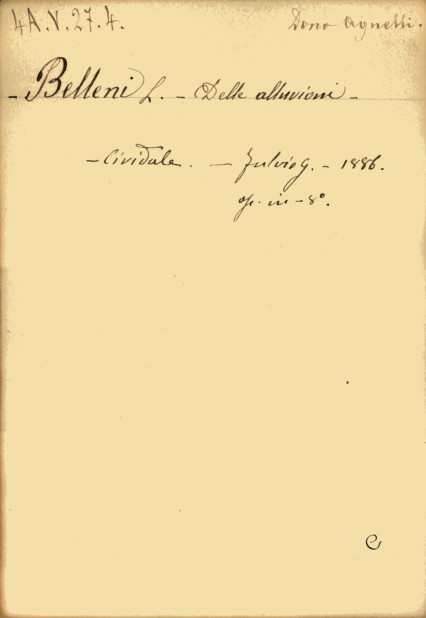 4A.V.27.4. Dono Agnelli.
- Belleni L. - Delle alluvioni -
- Cividale. - Fulvio G. - 1886.
op. in - 8°.
e